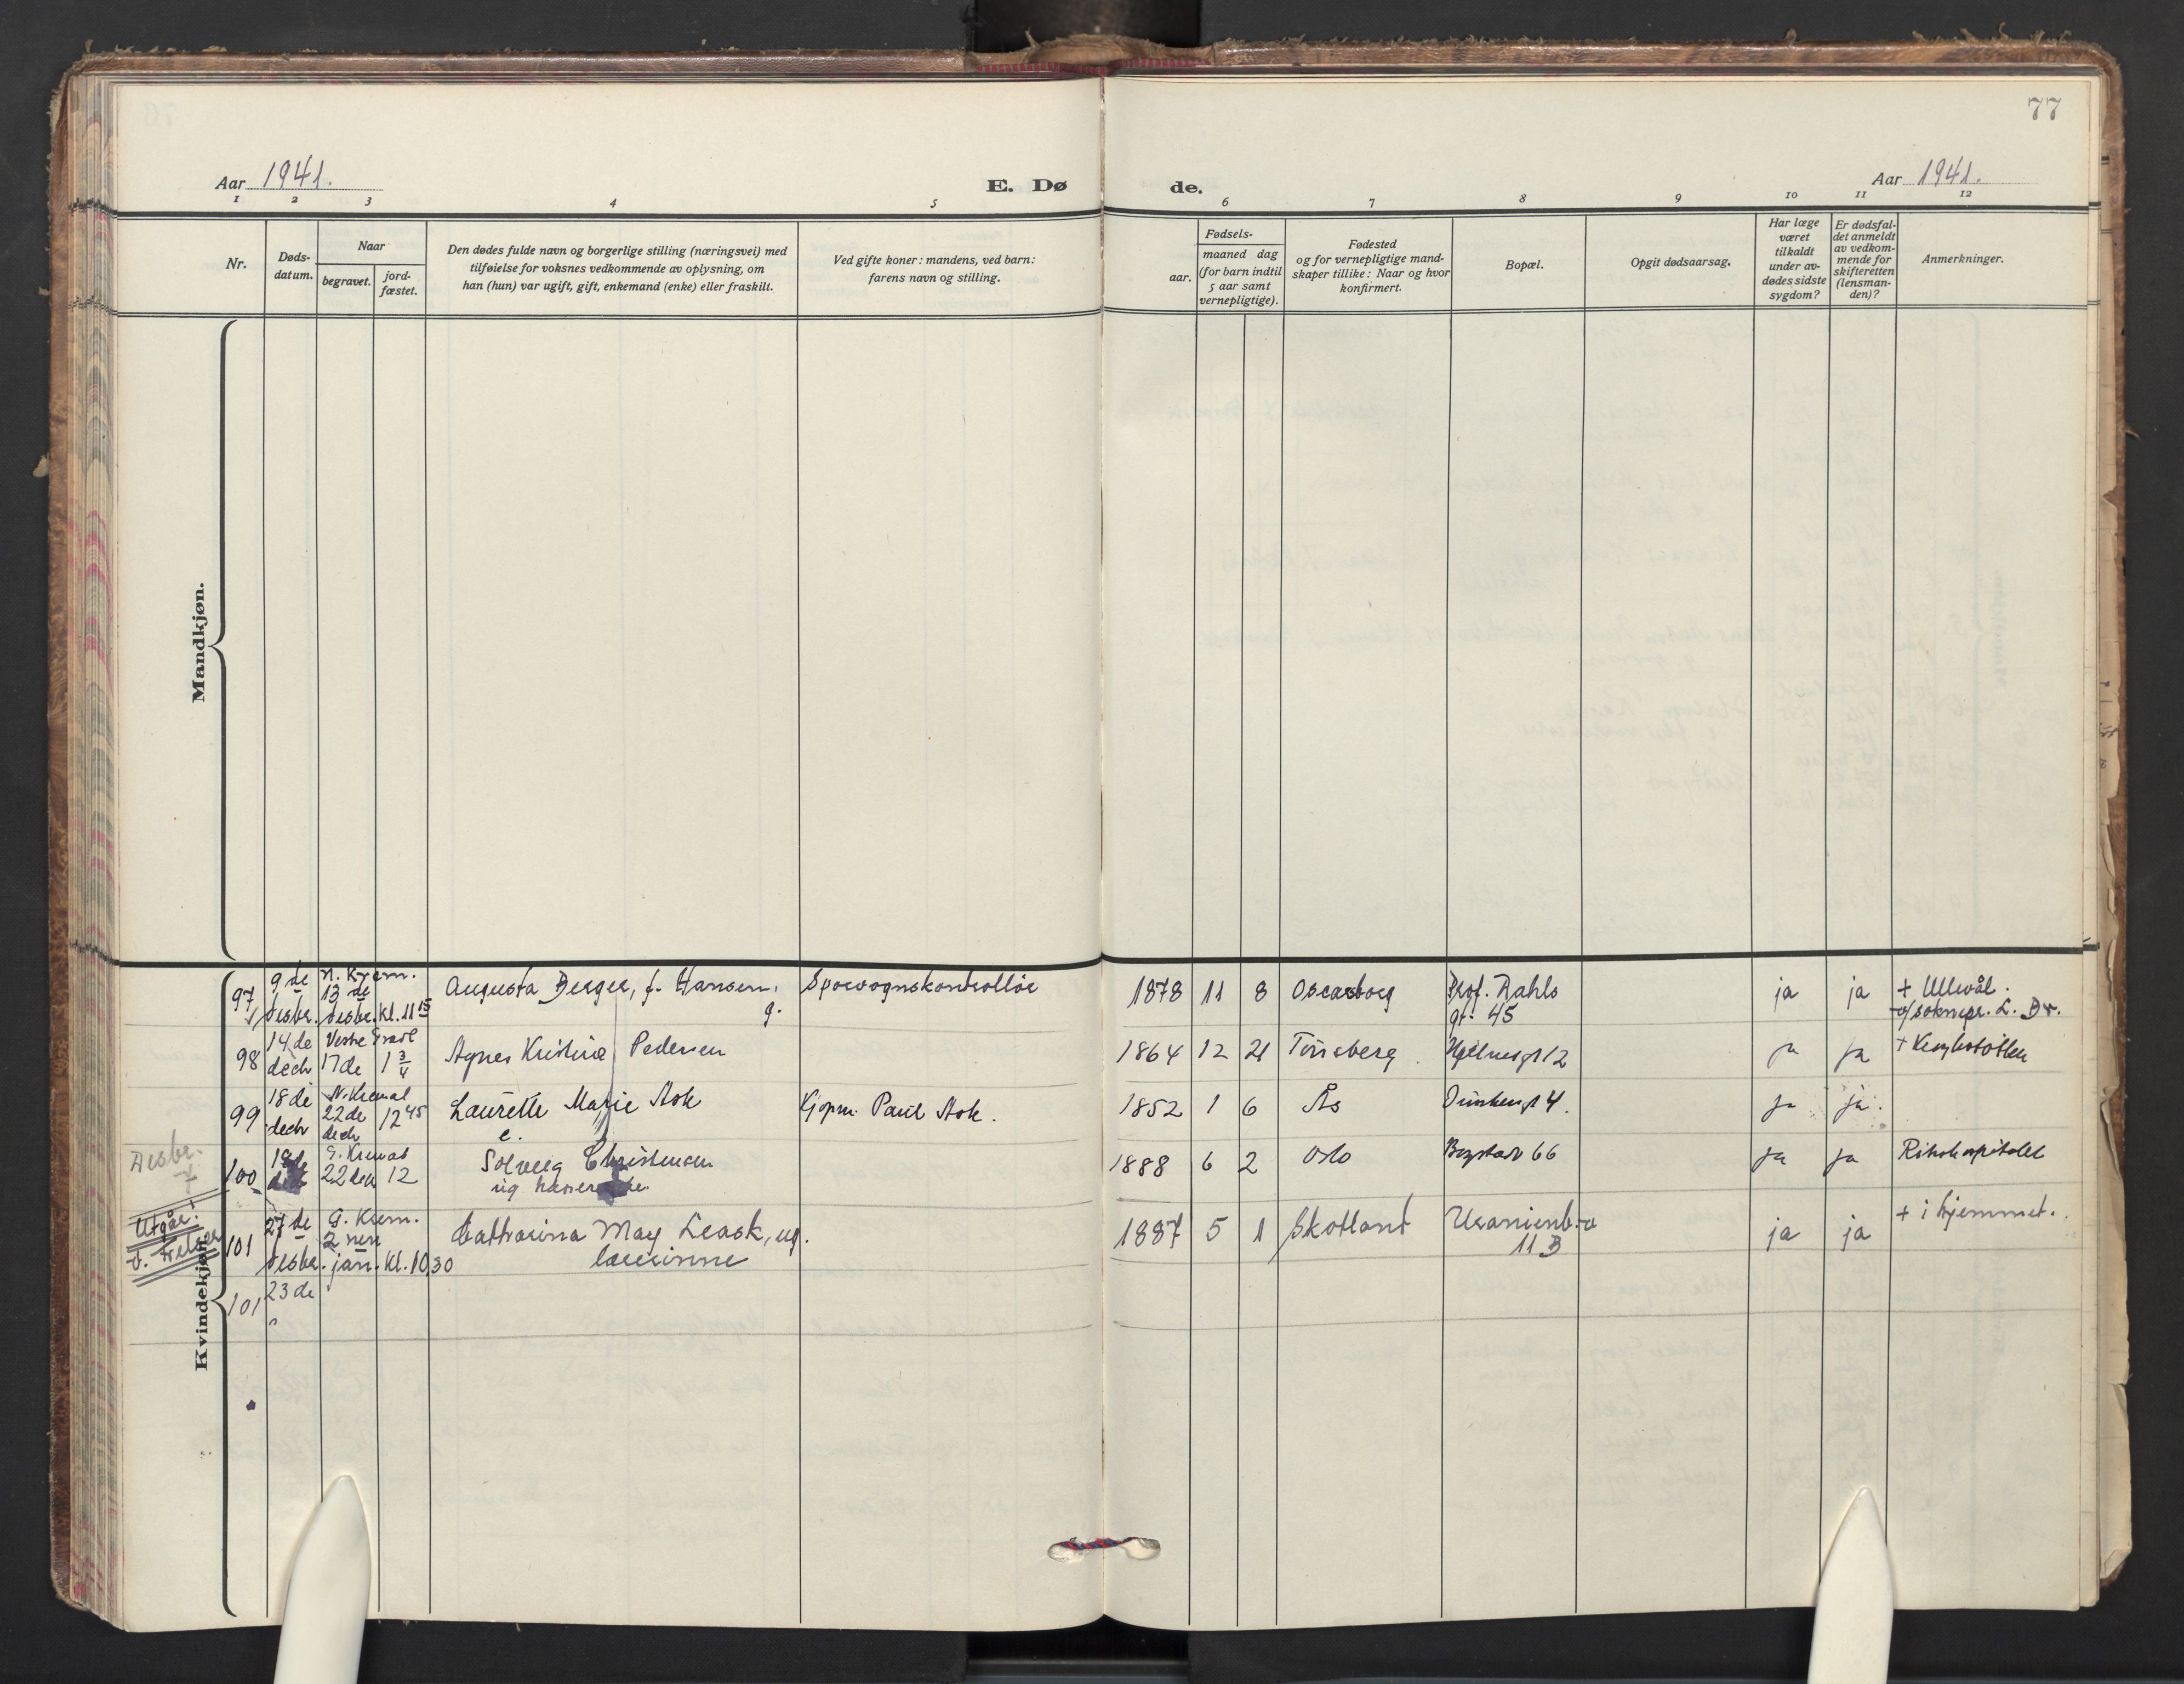 77
Aar 1941.
E. Dø
de.
Aar 1941.
1 2 3 4 5 6 7 8 9 10 11 12
Nr.
Døds-
datum.
Naar
begravet.
jord-
fæstet.
Den dødes fulde navn og borgerlige stilling (næringsvei) med
tilføielse for voksnes vedkommende av oplysning, om
han (hun) var ugift, gift, enkemand (enke) eller fraskilt.
Ved gifte koner: mandens, ved barn:
farens navn og stilling.
Fødsels-
aar.
maaned dag
(for barn indtil
5 aar samt
vernepligtige).
Fødested
og for vernepligtige mand-
skaper tillike: Naar og hvor
konfirmert.
Bopæl.
Opgit dødsaarsag.
Har læge
været
tilkaldt
under av-
dødes sidste
sygdom?
Er dødsfal-
det anmeldt
av vedkom-
mende for
skifteretten
(lensman-
den)?
Anmerkninger.
Mandkjøn.
Kvindekjøn.
97
9de
desbr.
N. Krem.
13de
desbr. kl. 11 15
Augusta Berger, f. Hansen.
g.
Sporvognskontrollør
1878 11 8 Oscarsborg
Prof. Dahls
gt. 45
ja ja
+ Ullevål.
s/soknepr. L. Br.
98
14de
decbr
Vestre Gravl
17de 1 3/4
Agnes Kristine Pedersen
1864 12 21 Tønsberg
12
ja ja
99
18de
decbr
N. Kremat
22de
decbr
12 45
Laurette Marie Ask
e.
Kjøpm. Paul Ask.
1852 1 6 Ås
4.
ja ja.
Desbr.
100
18de
G. Kremat
22 den 12
Solveig Christensen
ug
1888 6 2 Oslo
Bogstadv 66
ja ja
Rikshospitalet
Utgår!
v. Frelser
101
27de
desbr.
G. Krem.
2 nen
jan. kl. 10,30
Catharina May Leask, ug.
lærerinne
1887 5 1 Skotland
Uranienb.v
11 B
ja ja
+ i hjemmet.
101
23de
"